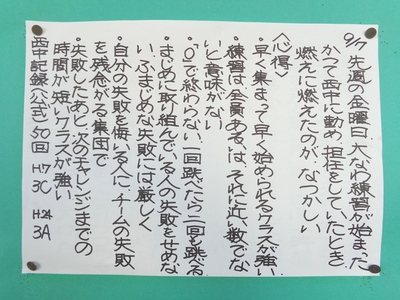 9/7 先週の金曜日 大なわ練習が始まった
かつて西中に勤め担任をしていたとき
燃えに燃えたのが、なつかしい
〈心得〉
・早く集まって早く始められるクラスが強い
・練習は全員あるいは、それに近い数でな
いと意味がない
・"0"で終わらない 一回跳べたら二回も跳べる
・まじめに取り組んでいる人の失敗をせめな
い、ふまじめな失敗には厳しく
・自分の失敗を悔いる人に、チームの失敗
を残念がる集団で
・失敗したあと、次のチャレンジまでの
時間が短いクラスが強い
西中記録(公式)50回 H.7 3C H.24 3A